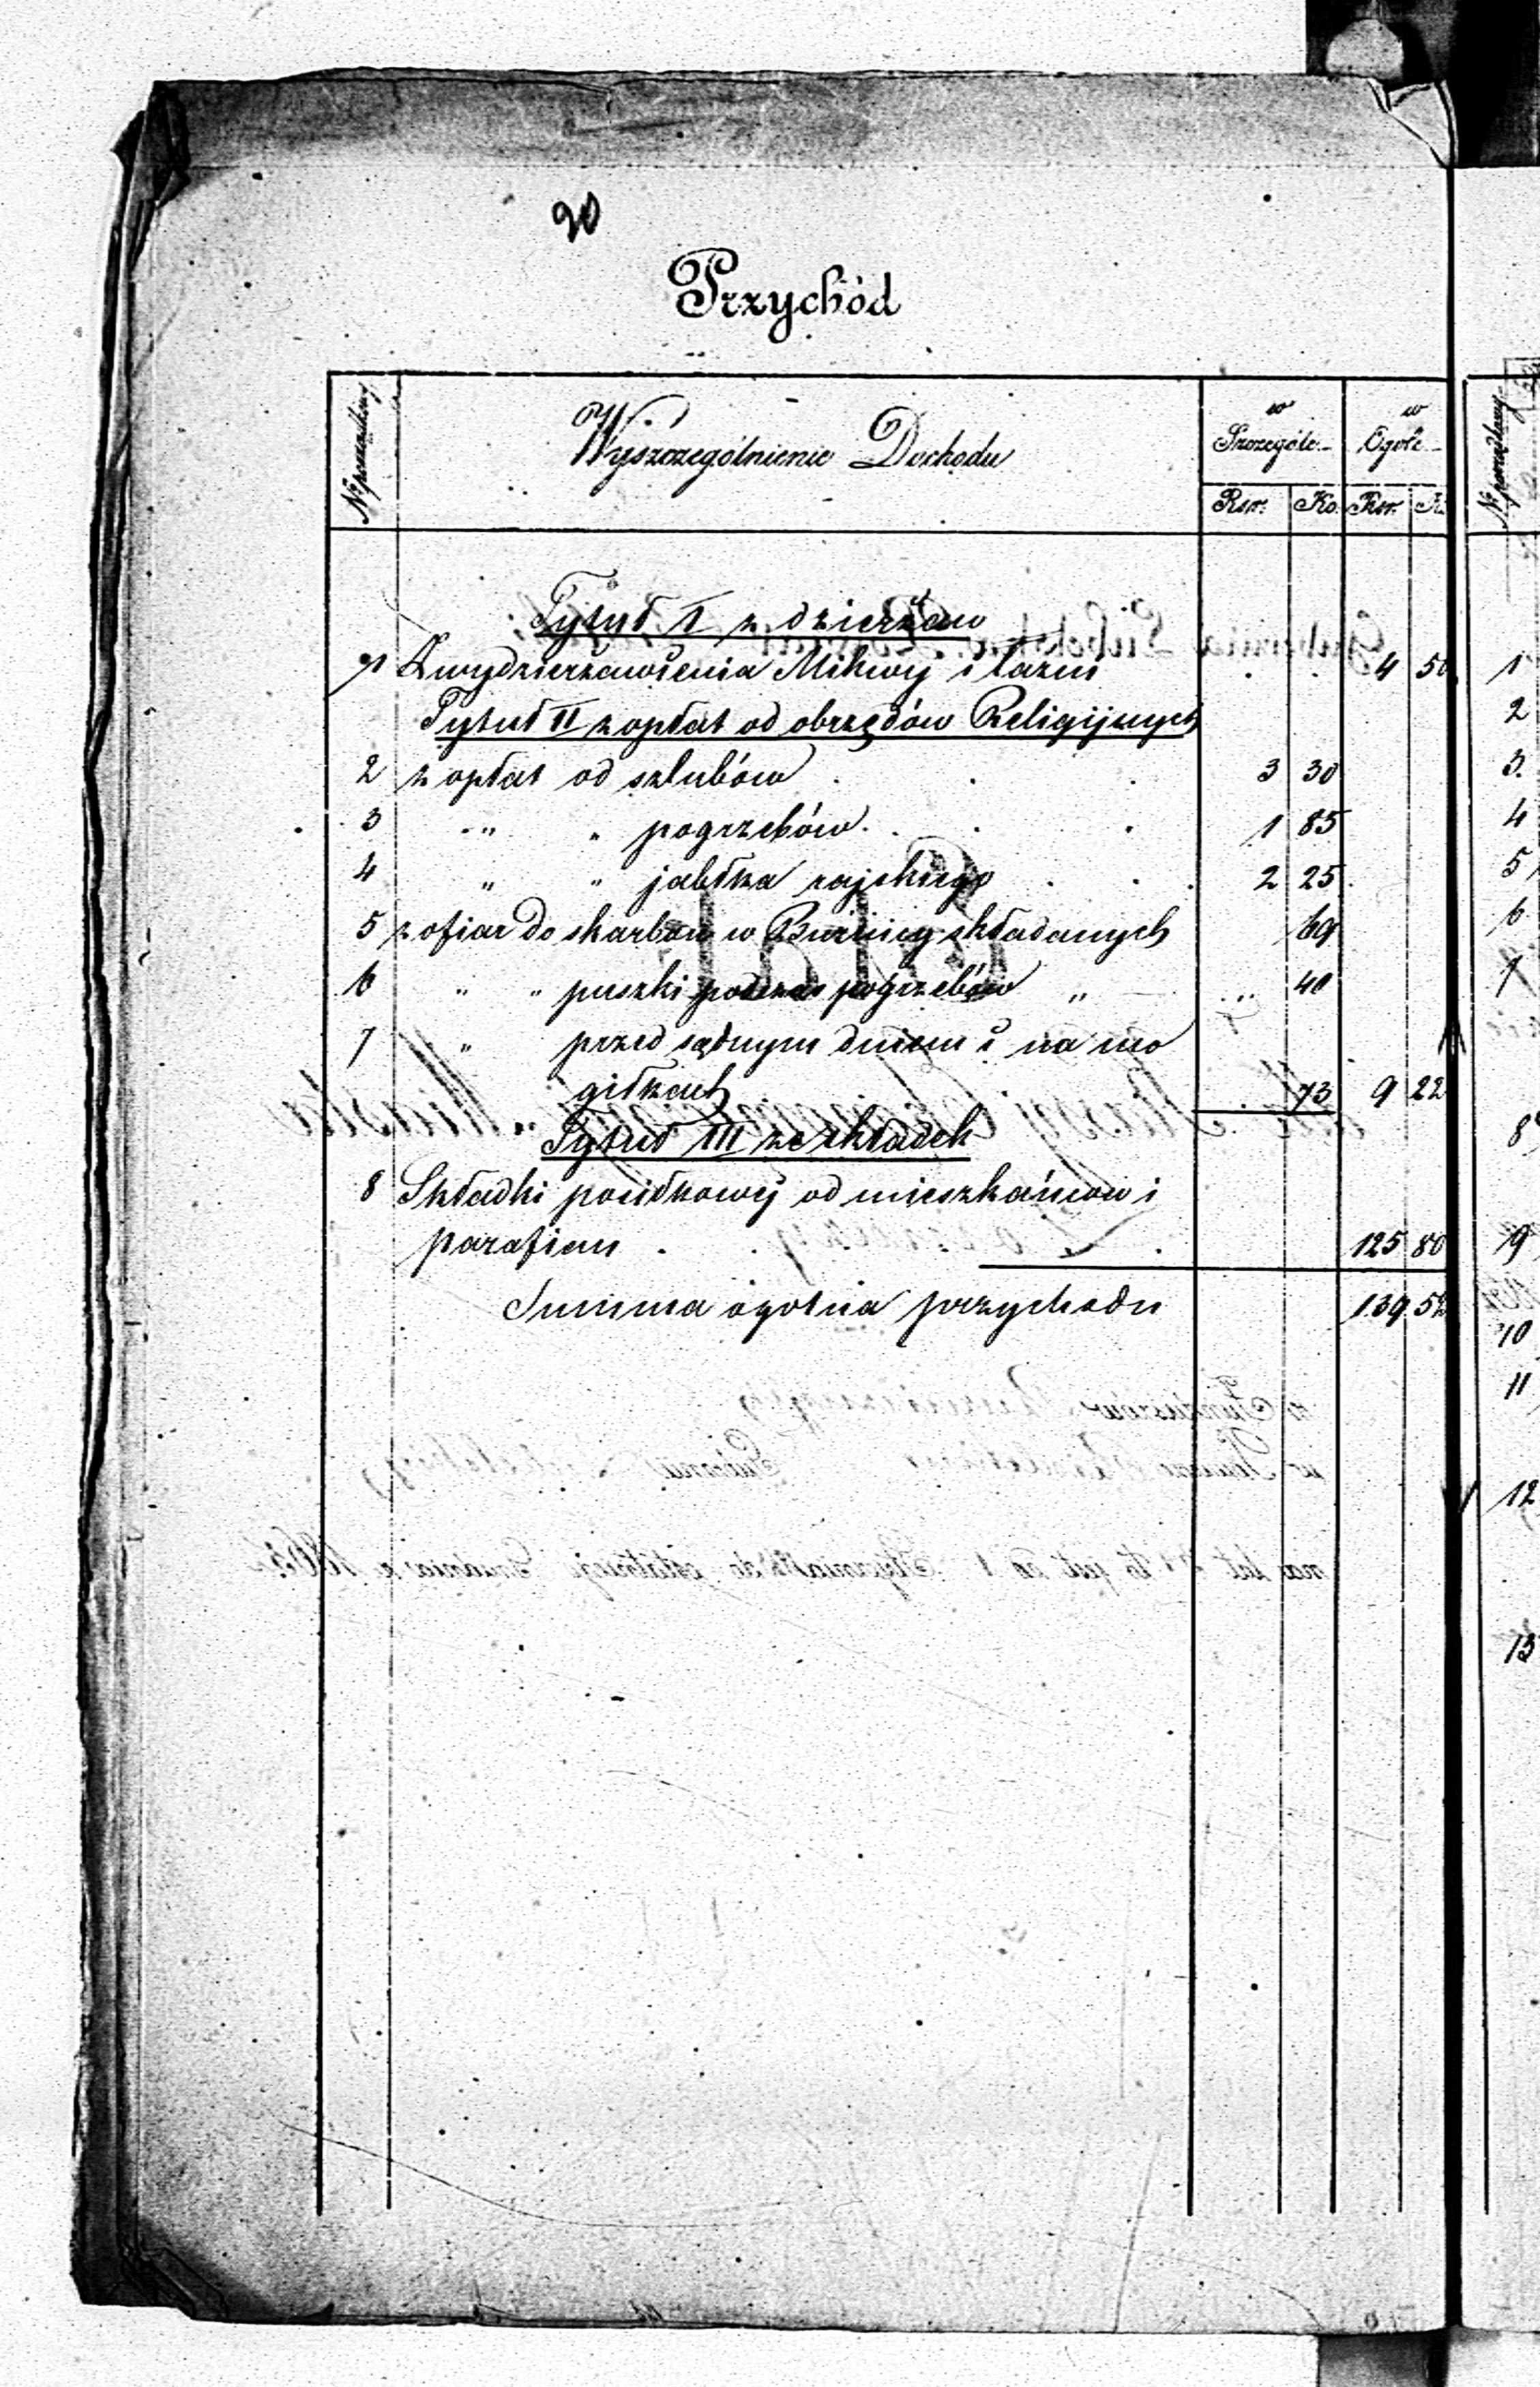 20
Przychód
No porządkowy
Wyszczególnienie Dochodu
w Szczególe
w Ogóle
Rsr. Ko. Rsr. K.
Tytuł I z dzierżaw
1 Z wydzierżawienia Mikwy i łaźni . . 4 50
Tytuł II z opłat od obrzędów Religijnych
2 z opłat od szlubów . . . 3 30
3 " " pogrzebów . . . 1 85
4 " " jabłka rajskiego . . . 2 25
5 z ofiar do skarbon w Bużnicy składanych 69
6 " " puszki podczas pogrzebów " 40
7 " przed sądnym dniem i na mo
giłkach 73 9 22
Tytuł III ze składek
8 Składki posiłkowej od mieszkańców i
parafian . . . 125 80
Summa ogolna przychodu 139 52
No porządkowy
1
2
3.
4
5
6
7
8
9
10
11
12
13